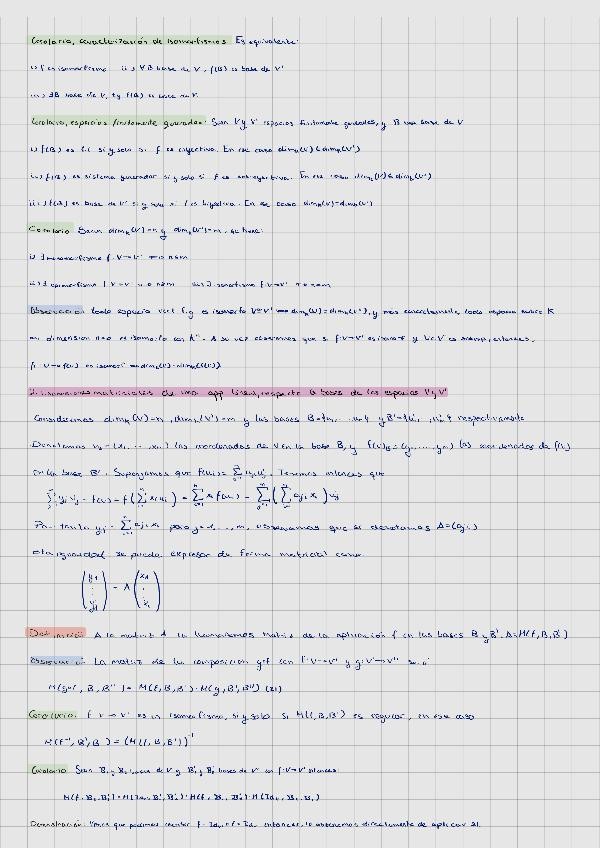 Corolario, caracterización de isomorfismos Es equivalente:
i) f es isomorfismo ii) ∀B base de V, f(B) es base de V'
iii) ∃B base de V, tq f(B) es base de V'
Corolario, espacios finitamente generados: Sean V y V' espacios finitamente generados, y B una base de V
i) f(B) es l.i si y solo si f es inyectiva. En ese caso dimₖ(V) ≤ dimₖ(V')
ii) f(B) es sistema generador si y solo si f es sobreyectiva. En ese caso dimₖ(V') ≤ dimₖ(V)
iii) f(B) es base de V' si y solo si f es biyectiva. En ese caso dimₖ(V) = dimₖ(V')
Corolario Sean dimₖ(V)=n y dimₖ(V')=m, se tiene:
i) ∃ monomorfismo f: V→V' ⟺ n≤m
ii) ∃ epimorfismo f: V→V' ⟺ n≥m iii) ∃ isomorfismo f: V→V' ⟺ n=m
Observación todo espacio vect f.g es isomorfo V≅V' ⟺ dimₖ(V)=dimₖ(V'), y más concretamente todo espacio sobre K
en dimensión n>0 es isomorfo con Kⁿ. A su vez observamos que si f: V→V' es isomorf y U⊂V es subesp, entonces
2. Dimensiones matriciales de una app lineal, respecto a bases de los espacios V y V'
Consideremos dimₖ(V)=n, dimₖ(V')=m y las bases B={u₁, ... uₙ} y B'={u'₁, ... u'ₘ} respectivamente
Denotamos v_B = (x₁, ... xₙ) las coordenadas de v en la base B, y f(v)_B' = (y₁, ..., yₘ) las coordenadas de f(v)
en la base B'. Supongamos que f(uᵢ) = Σ aᵢⱼ u'ⱼ. Tenemos entonces que
Σ yⱼ vⱼ = f(v) = f(Σ xᵢ uᵢ) = Σ xᵢ f(uᵢ) = Σ (Σ aⱼᵢ xᵢ) vⱼ
Por tanto yⱼ = Σ aⱼᵢ xᵢ para j=1, ..., m, observamos que si denotamos A=(aⱼᵢ)
la igualdad se puede expresar de forma matricial como
(y₁ ⋮ yₘ) = A (x₁ ⋮ xₙ)
Definición: A la matriz A la llamaremos matriz de la aplicación f en las bases B y B'. A=M(f,B,B')
Observación: La matriz de la composición g∘f con f: V→V' y g: V'→V'' será:
M(g∘f, B, B'') = M(f,B,B') · M(g,B',B'') (21)
Corolario: f: V→V' es un isomorfismo, si y solo si M(f,B,B') es regular, en ese caso
M(f⁻¹, B', B) = (M(f,B,B'))⁻¹
Corolario Sean B₁ y B₂ bases de V y B'₁ y B'₂ bases de V' y f: V→V' entonces:
Demostración: Vemos que podemos escribir f = Id ∘ f ∘ Id, entonces, lo obtenemos directamente de aplicar 21.